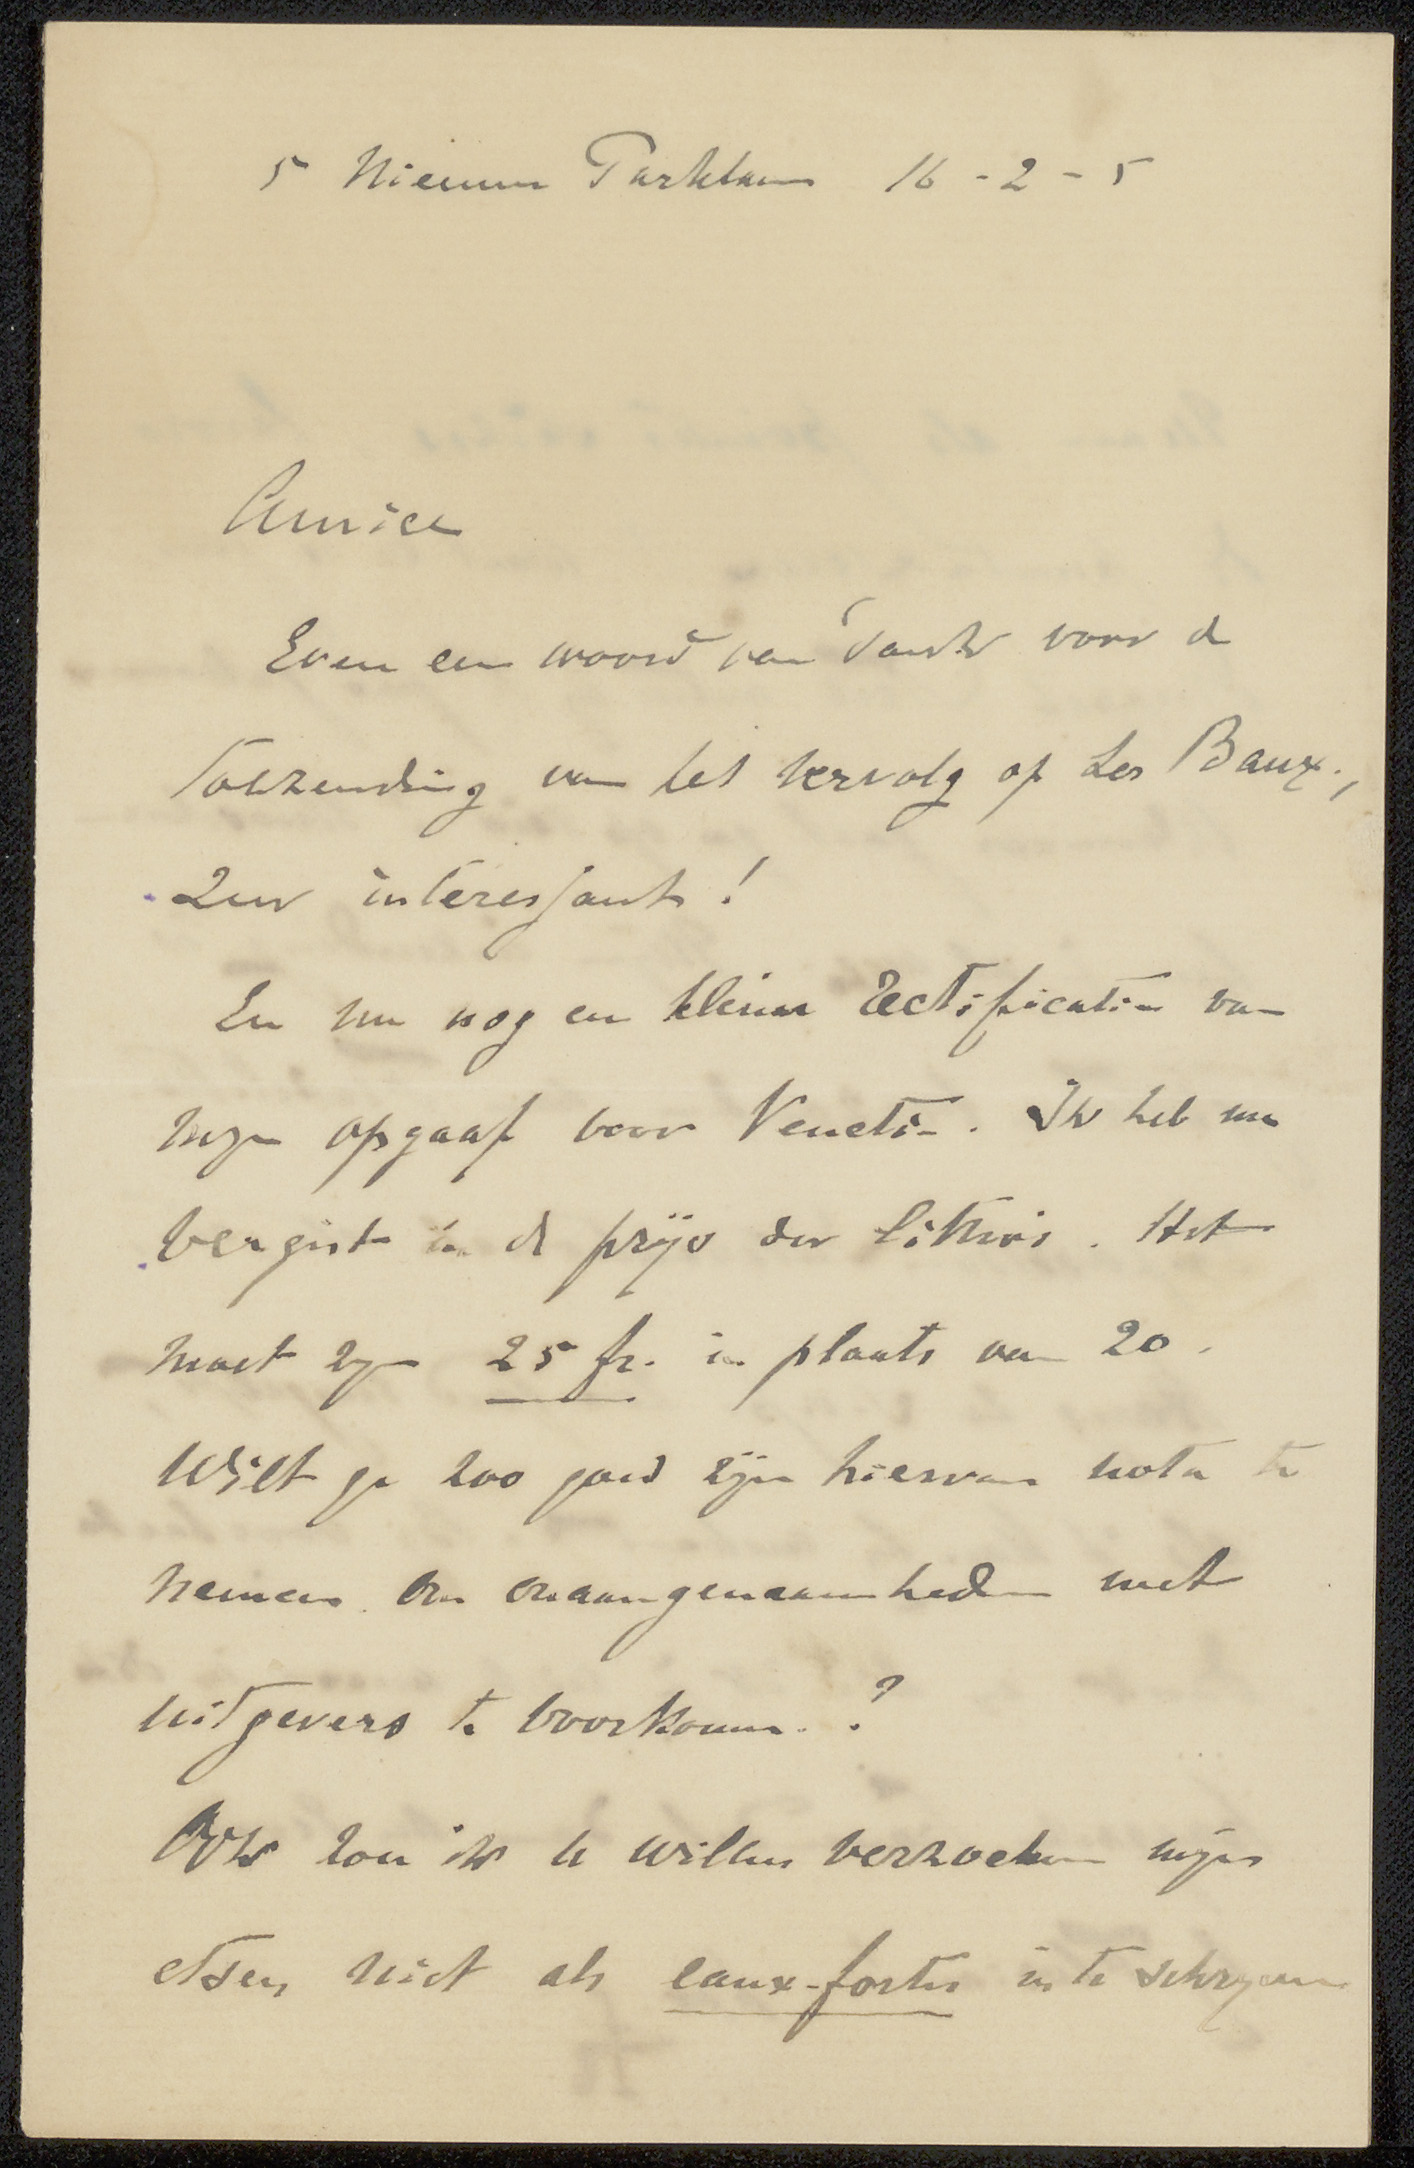 5 Nieuwe Parklaan 16-2-5
Amice
Even een woord van dank voor de
toezending van het vervolg op Les Baux.,
Zeer interessant!
En nu nog een kleine rectificatie van
mijn opgaaf voor Venetie. Ik heb me
vergist in de prijs der litho's. Het
moet zijn 25 fr. in plaats van 20.
Wilt ge zoo goed zijn hiervan nota te
nemen om onaangenaamheden met
uitgevers te voorkomen.?
Ook zou ik u willen verzoeken mijn
etsen niet als eaux-fortes in te schrijven